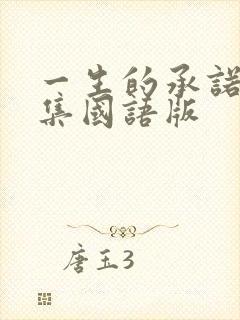 一生的承諾
集國語版
唐玉3